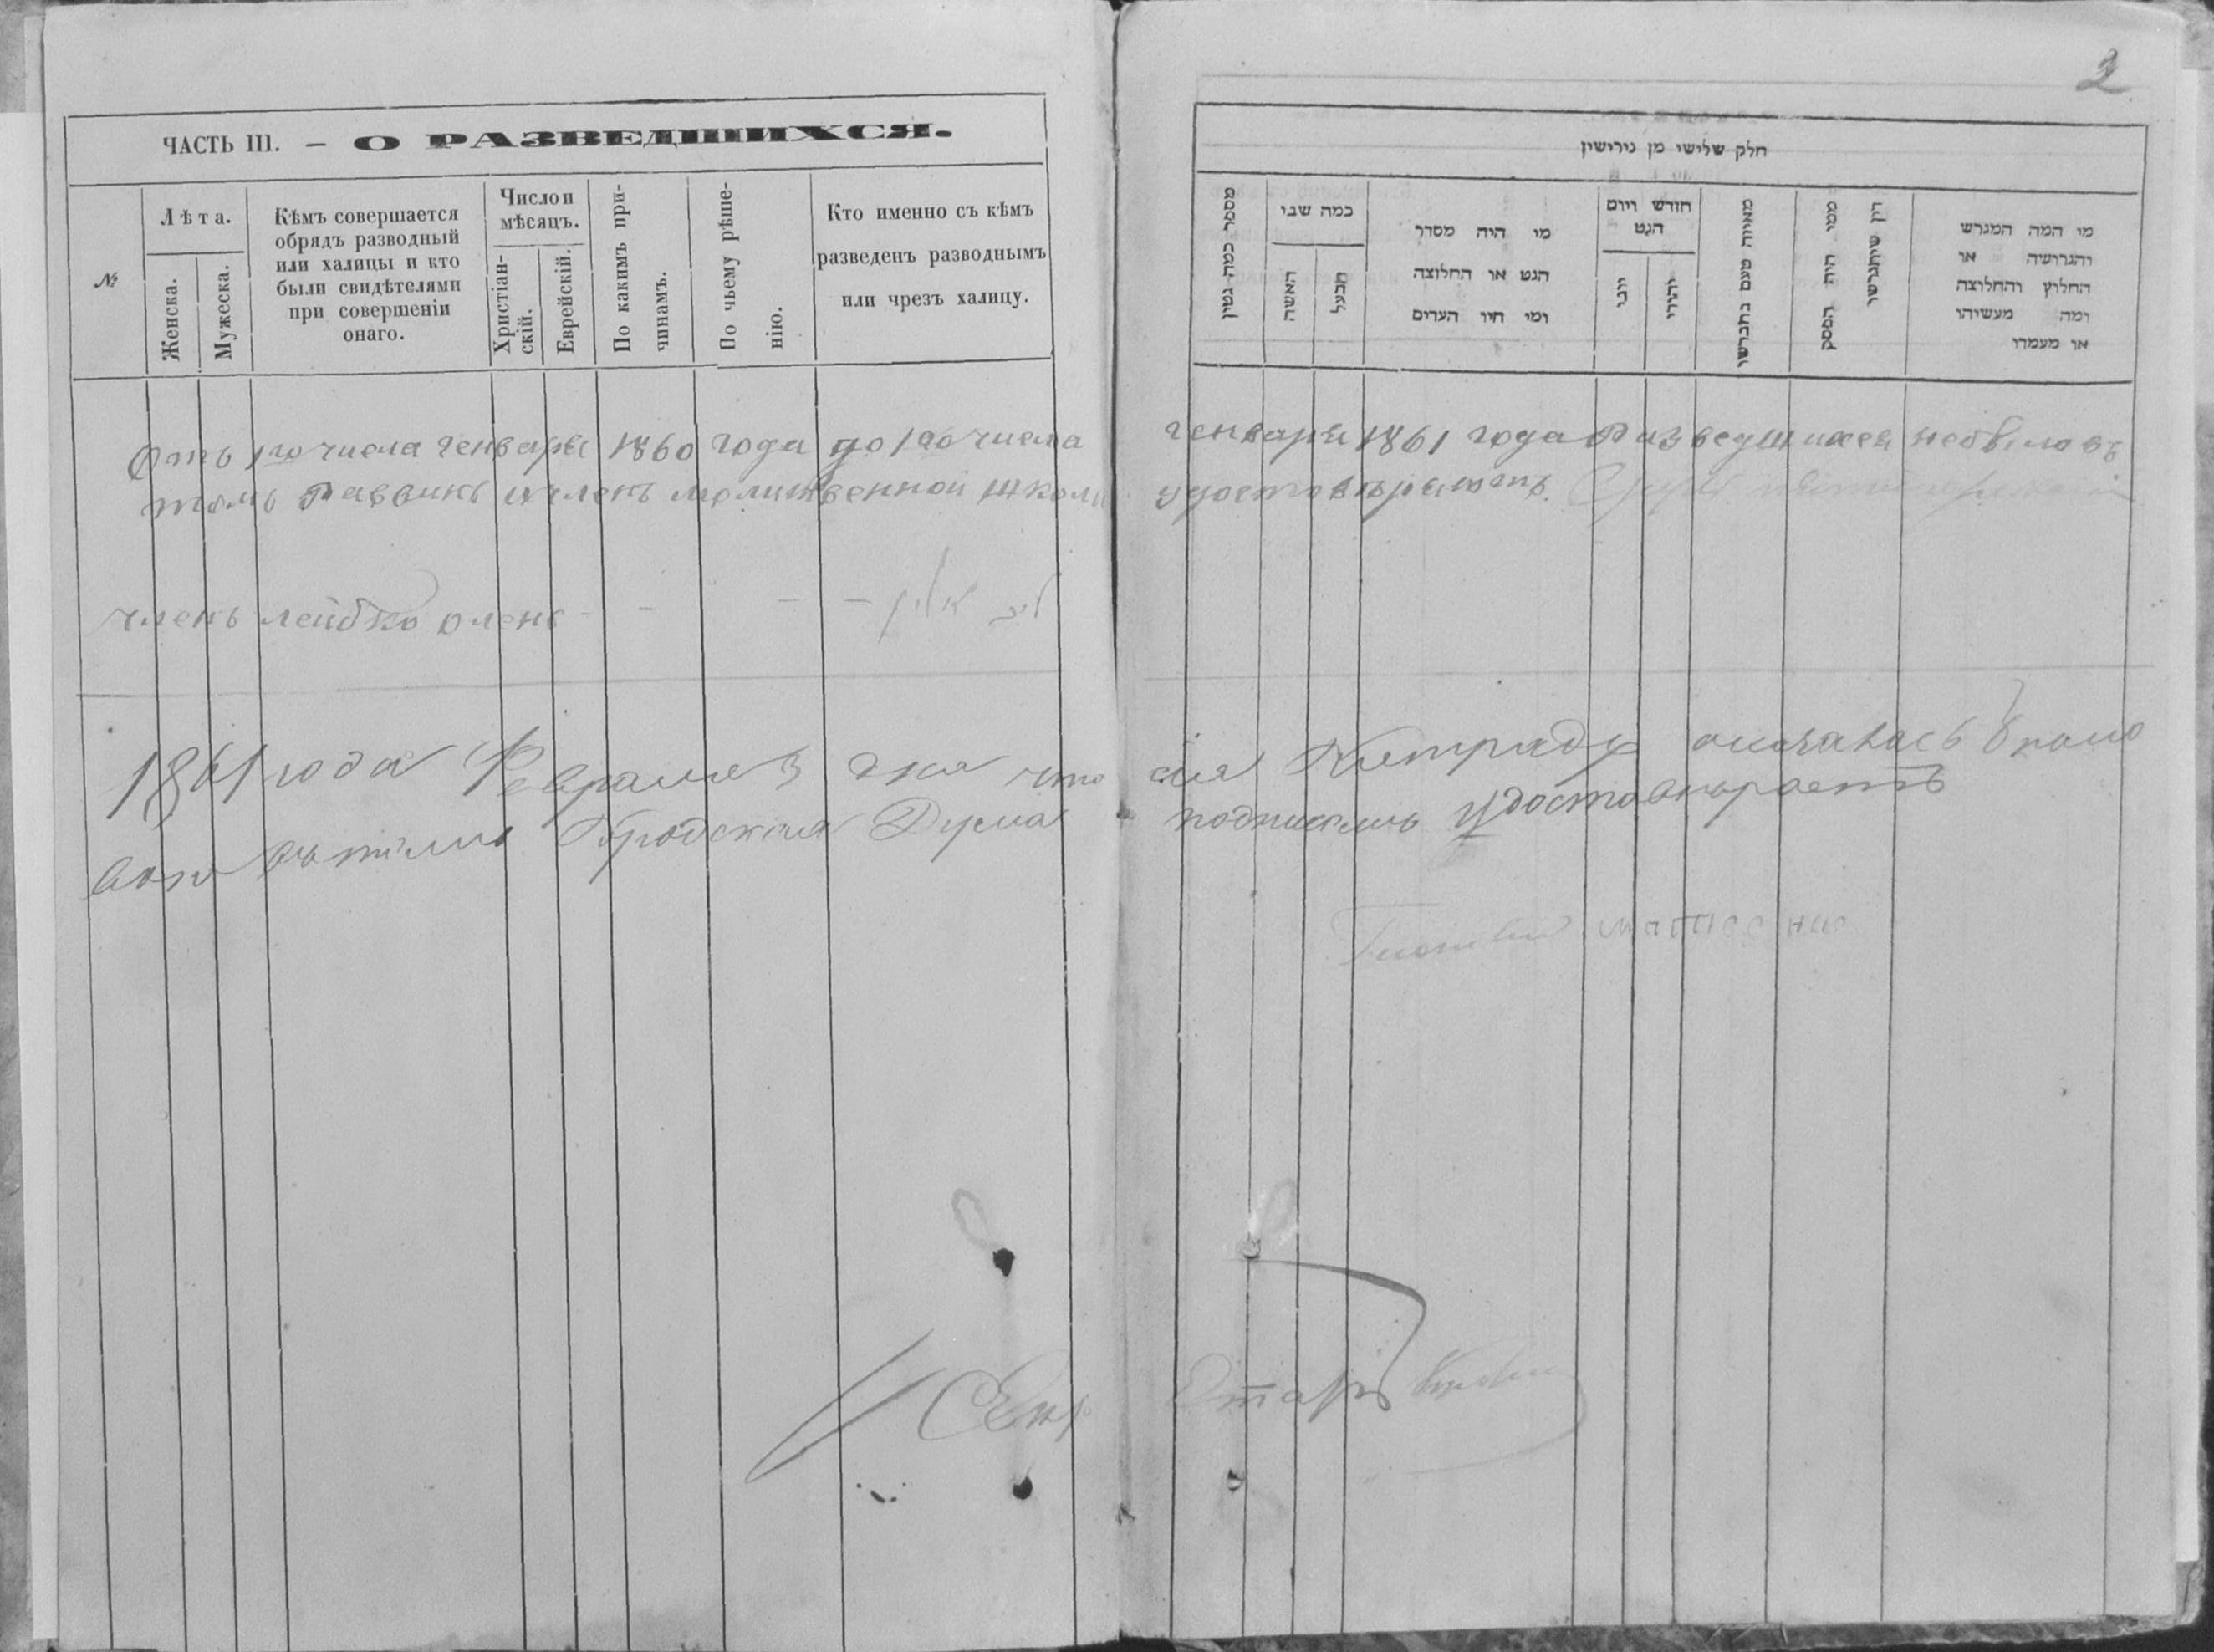 2
ЧАСТЬ III. — О РАЗВЕДШИХСЯ.
№
Лѣта.
Женска.
Мужеска.
Кѣмъ совершается
обрядъ разводный
или халицы и кто
были свидѣтелями
при совершеніи
онаго.
Число и
мѣсяцъ.
Христіан-
скій.
Еврейскій.
По какимъ при-
чинамъ.
По чьему рѣше-
нію.
Кто именно съ кѣмъ
разведенъ разводнымъ
или чрезъ халицу.
חלק שלישי מן גירושין
מספר כמה גטין
כמה שבי
האשה
הבעל
מי היה מסדר
הגט או החלוצה
ומי חיו העדים
חודש ויום
הגט
יוני
יהודי
מאיזה טעם נתגרשו
מפי היה הפסק
דין שיתגרשו
מו המה המגרש
והגרושה או
החלוץ והחלוצה
ומה מעשיהו
או מעמדו
Отъ 1го числа генваря 1860 года до 1го числа генваря 1861 года разведшихся небыло въ
томъ раввинъ и членъ молитвенной школы удостовѣряютъ.
членъ лейбко оленъ - - - -
1861 года Февраля 3 дня что сія тетрадь оказалась
Городская Дума подписомъ удостовѣряетъ
Секр